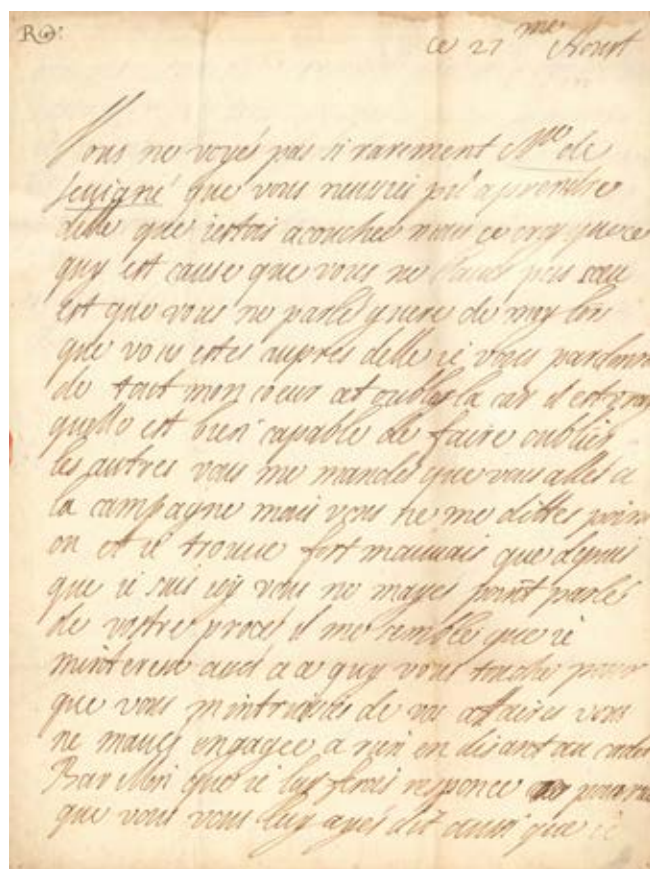 R
ce 27 me Aoust
Vous ne voyés pas si rarement Mme de
Sevigné que vous neussiés pu aprendre
delle que iestois acouchee mais ce
quy est cause que vous ne pas sceu
est que vous ne parlés guere de moy lors
que vous estes aupres delle ie vous pardonne
de tout mon coeur et oubliés la car il est
quelle est bien capable de faire oublier
les autres vous me mandés que vous allés a
la campagne mais vous ne me dittes point
ou et ie trouve fort mauvais que depuis
que ie suis icy vous ne mayés point parlé
de vostre proces il me semble que ie
minteresse assé a ce quy vous touche pour
que vous de vos affaires vous
ne mavés engagee a rien en disant au
que ie luy ferois responce
que vous luy ayés dit aussi que ie